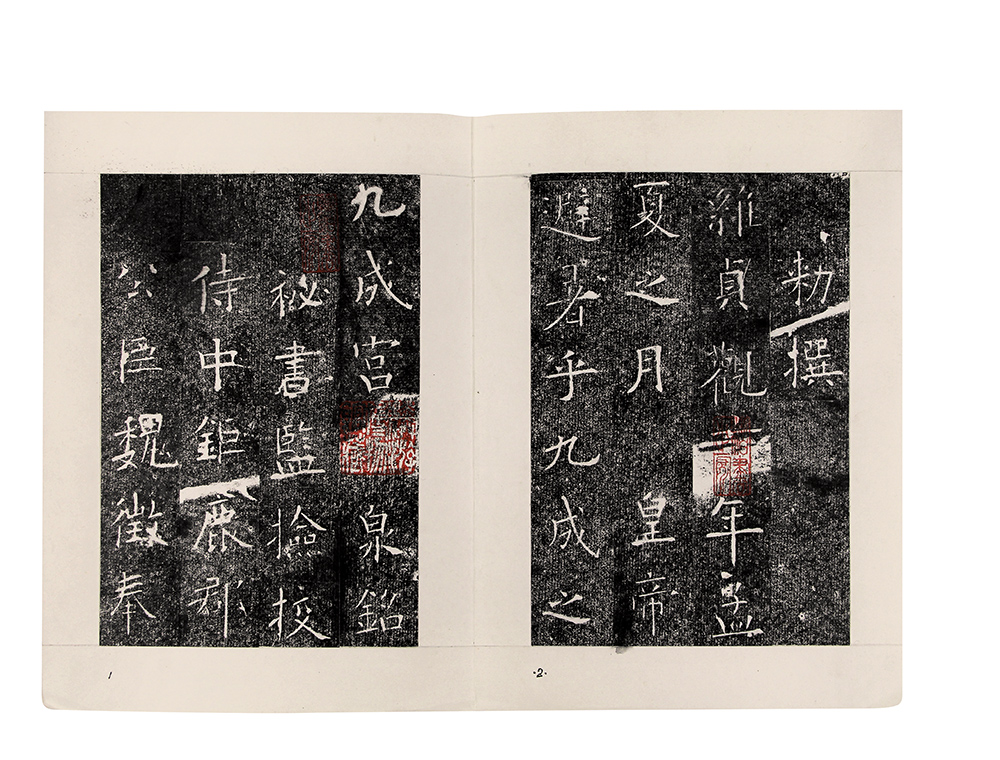 九成宮泉銘
祕書監撿挍
侍中鉅鹿郡
公臣魏徵奉
1
勑撰
維貞觀年孟
夏之月 皇帝
避暑乎九成之
·2·